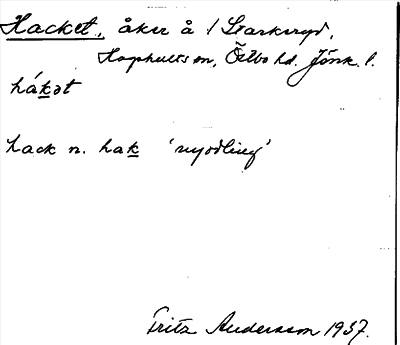 Hacket, åker å 1 Starkeryd,
Hagshults sn, Östbo hd. Jönk. l.
hák̲ət
hack n. hak̲ 'nyodling'
Fritz Andersson 1937.